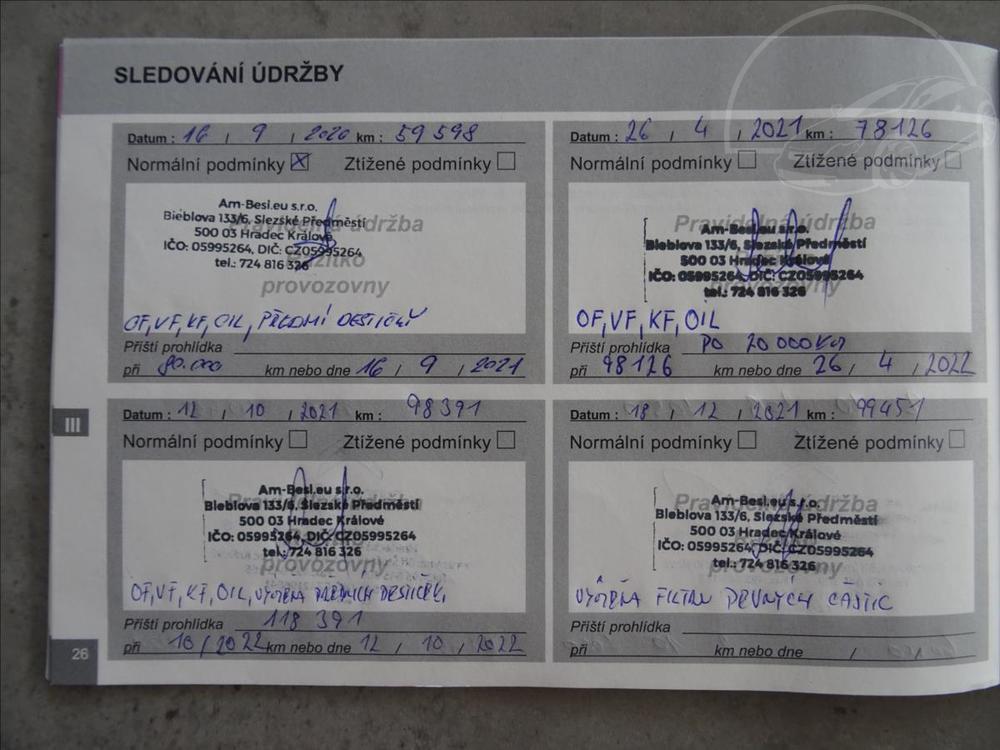 SLEDOVÁNÍ ÚDRŽBY
Datum : 16 / 9 / 2020 km : 59 598
Normální podmínky X Ztížené podmínky
Pravidelná údržba
Razítko
provozovny
Am-Besl.eu s.r.o.
Bieblova 133/6, Slezské Předměstí
500 03 Hradec Králové
IČO: 05995264, DIČ: CZ05995264
tel.: 724 816 326
OF, VF, KF, OIL, PŘEDNÍ DESTIČKY
Příští prohlídka
při 80.000 km nebo dne 16 / 9 / 2021
Datum : 26 / 4 / 2021 km : 78126
Normální podmínky Ztížené podmínky
Pravidelná údržba
provozovny
Am-Besl.eu s.r.o.
Bieblova 133/6, Slezské Předměstí
500 03 Hradec Králové
IČO: 05995264, DIČ: CZ05995264
tel.: 724 816 326
OF, VF, KF, OIL
Příští prohlídka PO 20 000 KM
při 98126 km nebo dne 26 / 4 / 2022
III
Datum : 12 / 10 / 2021 km : 98391
Normální podmínky Ztížené podmínky
Pravidelná údržba
provozovny
Am-Besl.eu s.r.o.
Bieblova 133/6, Slezské Předměstí
500 03 Hradec Králové
IČO: 05995264, DIČ: CZ05995264
tel.: 724 816 326
OF, VF, KF, OIL, VÝMĚNA PŘEDNÍCH DESTIČEK,
Příští prohlídka 118 391
při 10/2022 km nebo dne 12 / 10 / 2022
Datum : 18 / 12 / 2021 km : 99451
Normální podmínky Ztížené podmínky
Pravidelná údržba
Razítko
provozovny
Am-Besl.eu s.r.o.
Bieblova 133/6, Slezské Předměstí
500 03 Hradec Králové
IČO: 05995264, DIČ: CZ05995264
tel.: 724 816 326
VÝMĚNA FILTRU PEVNÝCH ČÁSTIC
Příští prohlídka
při km nebo dne / /
26